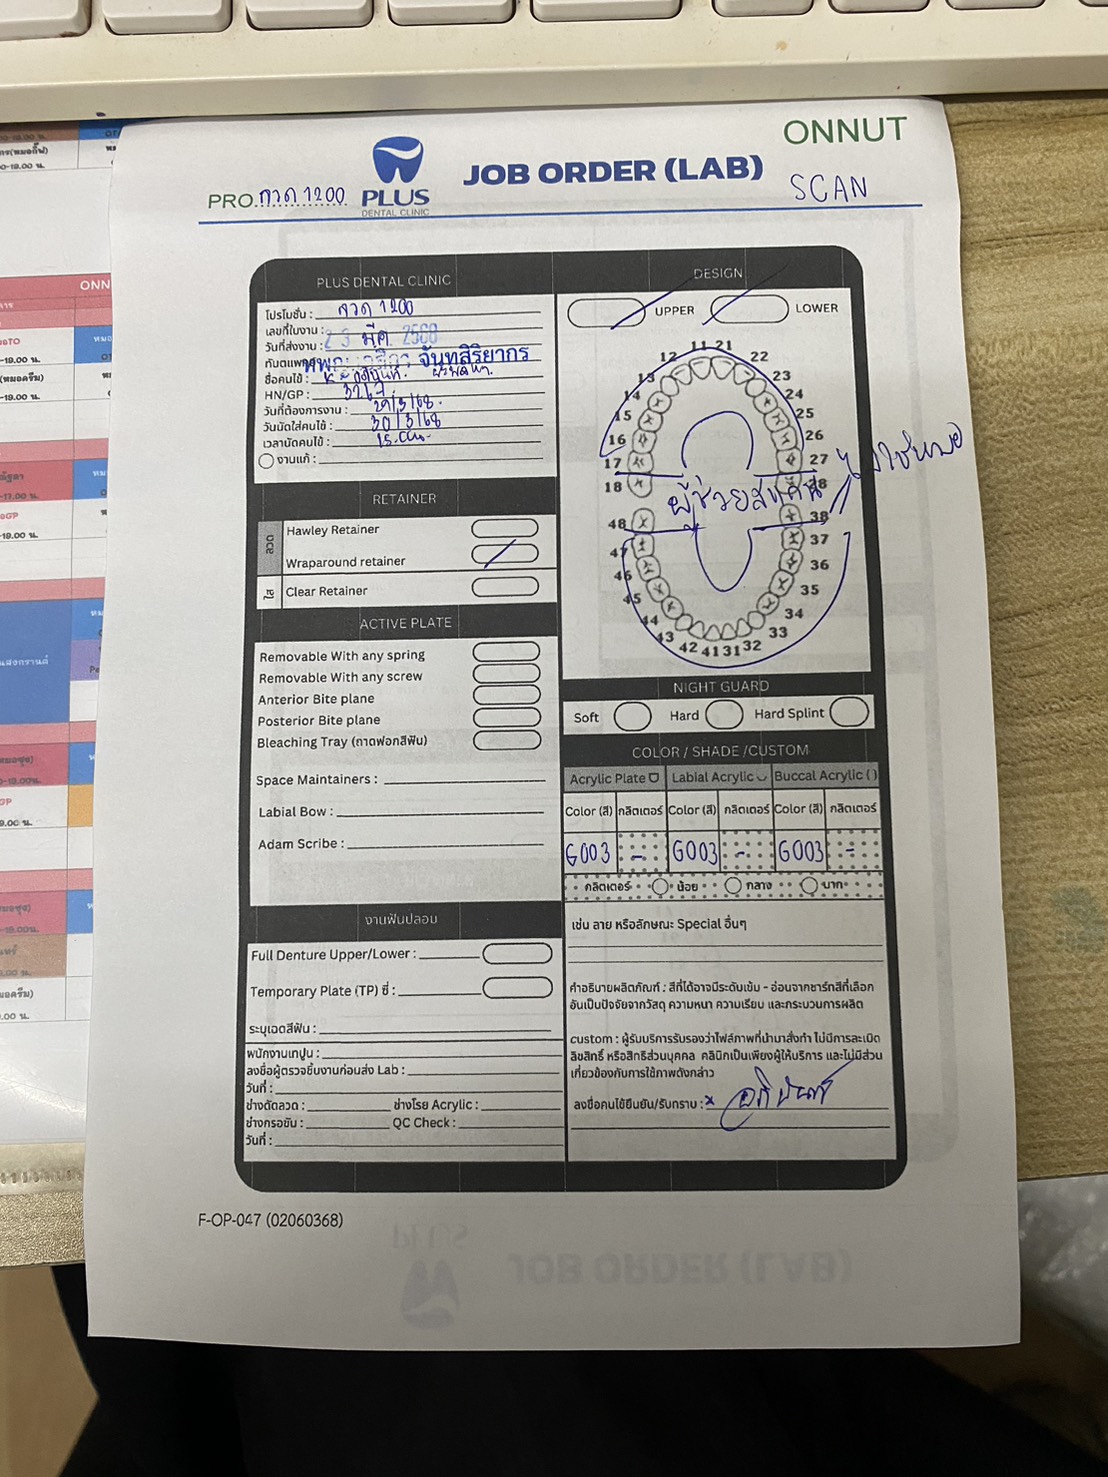 ONNUT
JOB ORDER (LAB)
SCAN
PRO. ลวด 1200
PLUS
DENTAL CLINIC
PLUS DENTAL CLINIC
โปรโมชั่น : ลวด 1200
เลขที่ใบงาน :
วันที่ส่งงาน : 23 มี.ค. 2568
ทันตแพทย์ จันทสิริยากร
ชื่อคนไข้ :
HN/GP : 3267
วันที่ต้องการงาน : 29/3/68.
วันนัดใส่คนไข้ : 30/3/68
เวลานัดคนไข้ :
งานแก้ :
RETAINER
ลวด
Hawley Retainer
Wraparound retainer
ใส
Clear Retainer
ACTIVE PLATE
Removable With any spring
Removable With any screw
Anterior Bite plane
Posterior Bite plane
Bleaching Tray (ถาดฟอกสีฟัน)
Space Maintainers :
Labial Bow :
Adam Scribe :
งานฟันปลอม
Full Denture Upper/Lower :
Temporary Plate (TP) ซี่ :
ระบุเฉดสีฟัน :
พนักงานเทปูน :
ลงชื่อผู้ตรวจชิ้นงานก่อนส่ง Lab :
วันที่ :
ช่างดัดลวด : ช่างโรย Acrylic :
ช่างกรอขัด : QC Check :
วันที่ :
DESIGN
UPPER LOWER
11 21
12 22
13 23
14 24
15 25
16 26
17 27
18 28
ผู้ช่วยสแกน ไม่ใช่หมอ
48 38
47 37
46 36
45 35
44 34
43 33
42 41 31 32
NIGHT GUARD
Soft Hard Hard Splint
COLOR / SHADE /CUSTOM
Acrylic Plate Labial Acrylic Buccal Acrylic ( )
Color (สี) กลิตเตอร์ Color (สี) กลิตเตอร์ Color (สี) กลิตเตอร์
G003 - G003 - G003 -
กลิตเตอร์ น้อย กลาง มาก
เช่น ลาย หรือลักษณะ Special อื่นๆ
คำอธิบายผลิตภัณฑ์ : สีที่ได้อาจมีระดับเข้ม - อ่อนจากชาร์ทสีที่เลือก
อันเป็นปัจจัยจากวัสดุ ความหนา ความเรียบ และกระบวนการผลิต
custom : ผู้รับบริการรับรองว่าไฟล์ภาพที่นำมาสั่งทำ ไม่มีการละเมิด
ลิขสิทธิ์ หรือสิทธิส่วนบุคคล คลินิกเป็นเพียงผู้ให้บริการ และไม่มีส่วน
เกี่ยวข้องกับการใช้ภาพดังกล่าว
ลงชื่อคนไข้ยืนยัน/รับทราบ : x
F-OP-047 (02060368)